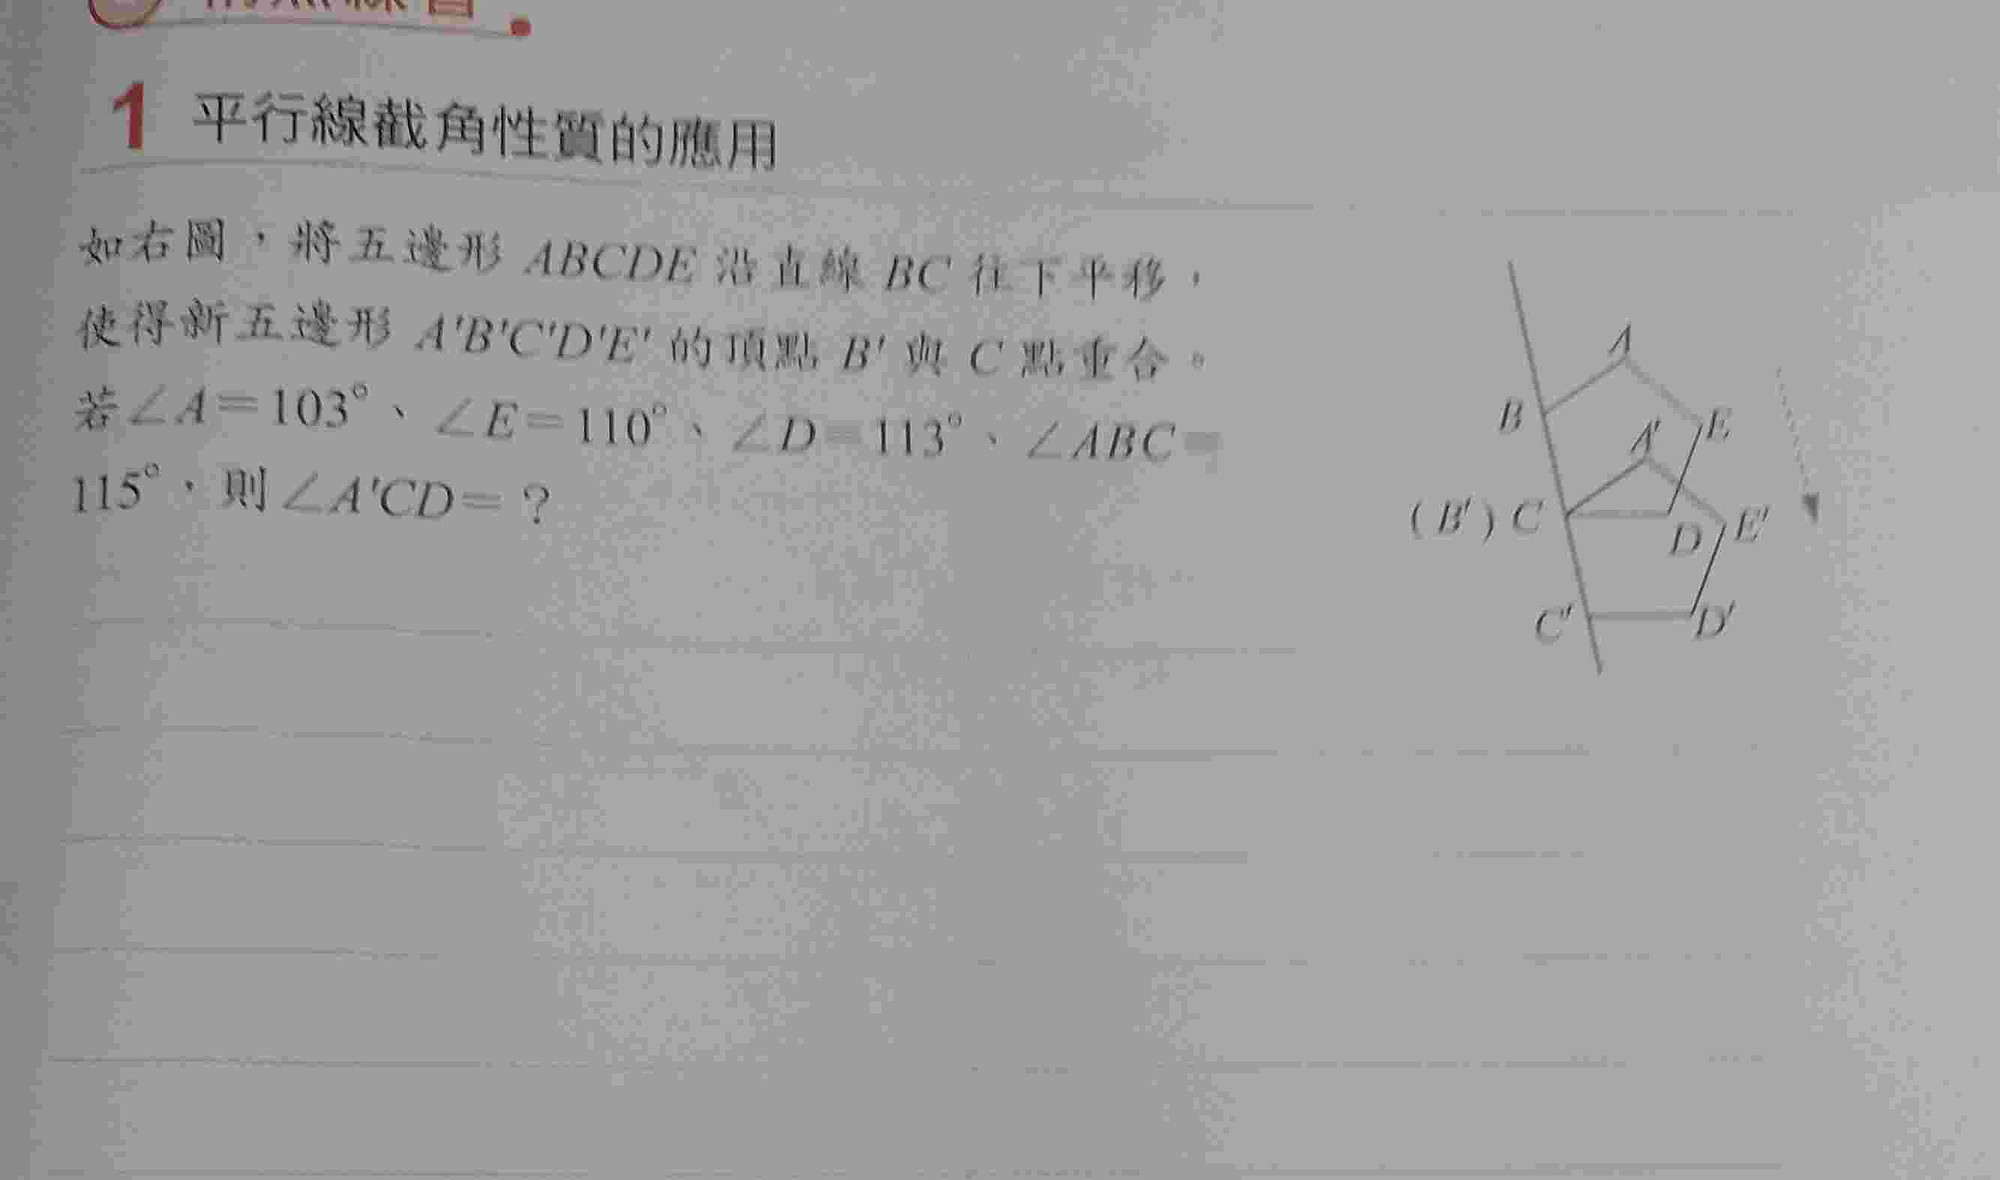 1 平行線截角性質的應用
如右圖，將五邊形 ABCDE 沿直線 BC 往下平移，
使得新五邊形 A'B'C'D'E' 的頂點 B' 與 C 點重合。
若∠A＝103°、∠E＝110°、∠D＝113°、∠ABC＝
115°，則∠A'CD＝？
A
B
E
A'
(B') C
D
E'
C'
D'